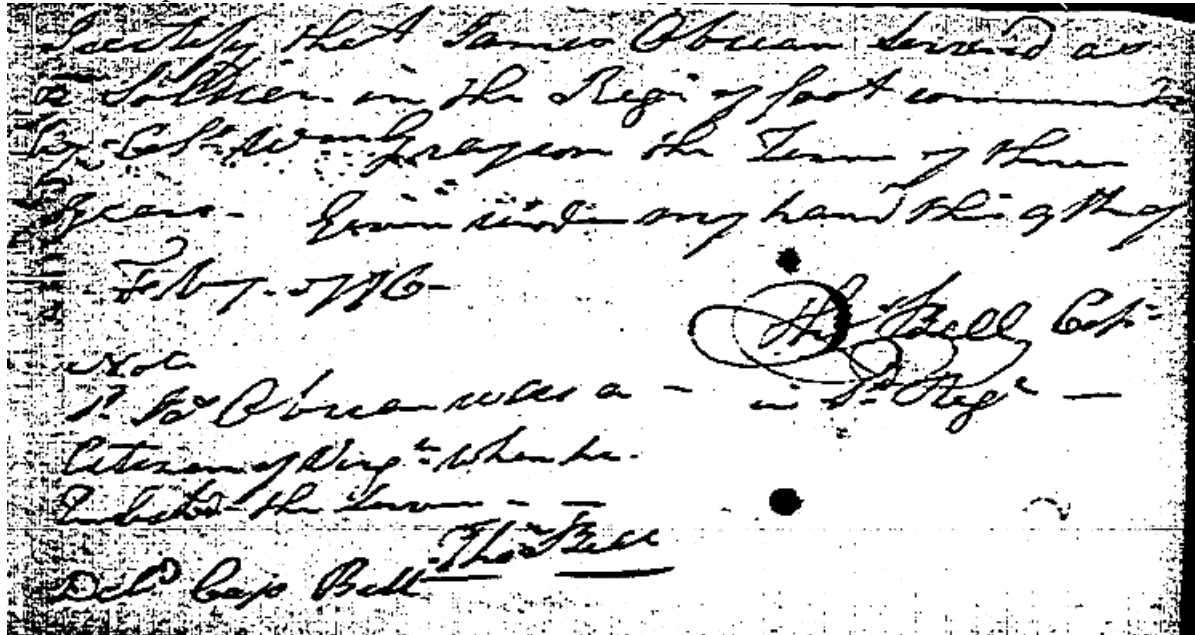 I certify that James Obrean served as
a Soldier in the Regt of foot commanded
by Colo. Wm Grayson the Term of three
years. Given under my hand this 9th of
Feby. 1776
Thos Bell Capt.
in sd. Regt
Note
sd. Jas Obrean was a
Citizen of Virga. when he
Enlisted the Term
Thos Bell
Deld Capt Bell